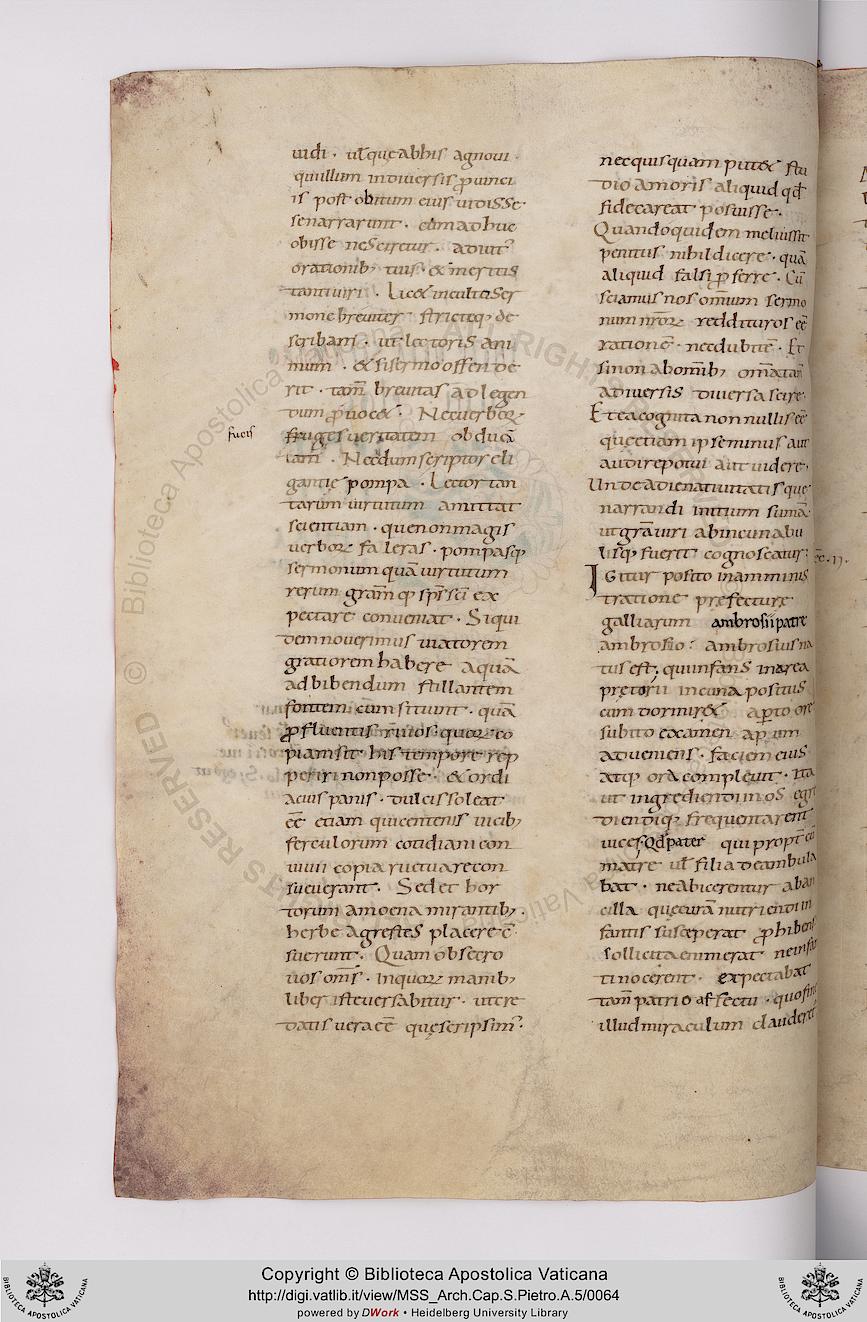 uidi · ut̄ quę abhis agnoui ·
qui illum in diuersis ꝓuinci
is post obitum eius uidisse
se narrarunt · cum adhuc
obisse nesciretur · adiut᷑
orationib; tuis · & meritis
tanti uiri · Lic& inculto ser
mone breuiter · strictęq; de
scribam · ut lectoris ani
mum · & si sermo offende
rit · tam̄ breuitas ad legen
dum ꝓuoc& · Nec uerboꝝ
fucis
frugis ueritatem obducā
tam̄ · Nec dum scriptor eli
gantię pompā · Lector tan
tarum uirtutum amittat
scientiam · quē non magis
uerboꝝ faleras · pompasq;
sermonum quā uirtutum
rerum gram̄ q; sp̄s sc̄i ex
pectare conueniat · Siqui
dem nouerimus uiatorem
gratiorem habere aquā
ad bibendum stillantem
fontem cum sitiunt · quā
ꝓfluentis riuos · quoꝝ co
piam sit his tempore rep
periri non posse · & ordi
acuis panis · dulcis soleat
eē etiam qui centenis uicib;
ferculorum cotidiani con
uiuii copia ructuare con
sueuerant · Sed et hor
torum amoena mirantib; ·
herbe agrestes placere c̄
suerunt · Quam obsecro
uos om̄s · in quoꝝ manib;
liber iste uersabitur · ut cre
datis uera eē quę scripsim᷑ ·
nec quisquam put& stu
dio amoris aliquid qđ
fide careat posuisse ·
Quandoquidem melius sit
penitus nihil dicere · quā
aliquid falsi ꝓferre · Cū
sciamus nos omnium sermo
num nr̄oꝝ reddituros eē
rationē · nec dubitē · Et
si non ab omnib; om̄a tam̄
a diuersis diuersa scire ·
Et ea cognita nonnullis eē
quę etiam ipse minus aut
audire potui aut uidere ·
Unde a die natiuitatis que
narrandi initium sumā
ut gr̄a uiri ab incunabu
lis q; fuerit cognoscatur :
IGitur posito in amminis
tratione prefecture
galliarum ambrosii patre
ambrosio : ambrosius na
tus est ; qui infans in area
pretorii in cuna positus
cum dormir& aperto ore
subito examen apum
adueniens · faciem eius
atq; ora compleuit · Ita
ut ingrediendi in os egre
diendiq; frequentarent
uices · Qđ pater qui propt̄ cū
matre ut̄ filia deambula
bat · ne abicerentur ab an
cilla quę curā nutriendi in
fantis susceperat ꝓhibens
sollicita enim erat ne infan
ti nocerent · expectabat
tam̄ patrio affectu · quo fine
illud miraculum clauderet᷑
Copyright © Biblioteca Apostolica Vaticana
http://digi.vatlib.it/view/MSS_Arch.Cap.S.Pietro.A.5/0064
powered by DWork • Heidelberg University Library